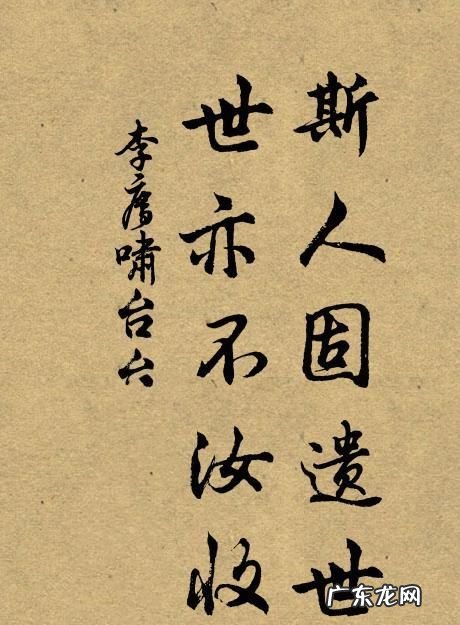 斯人固遗世
世亦不汝收
李膺啸台
广东龙网